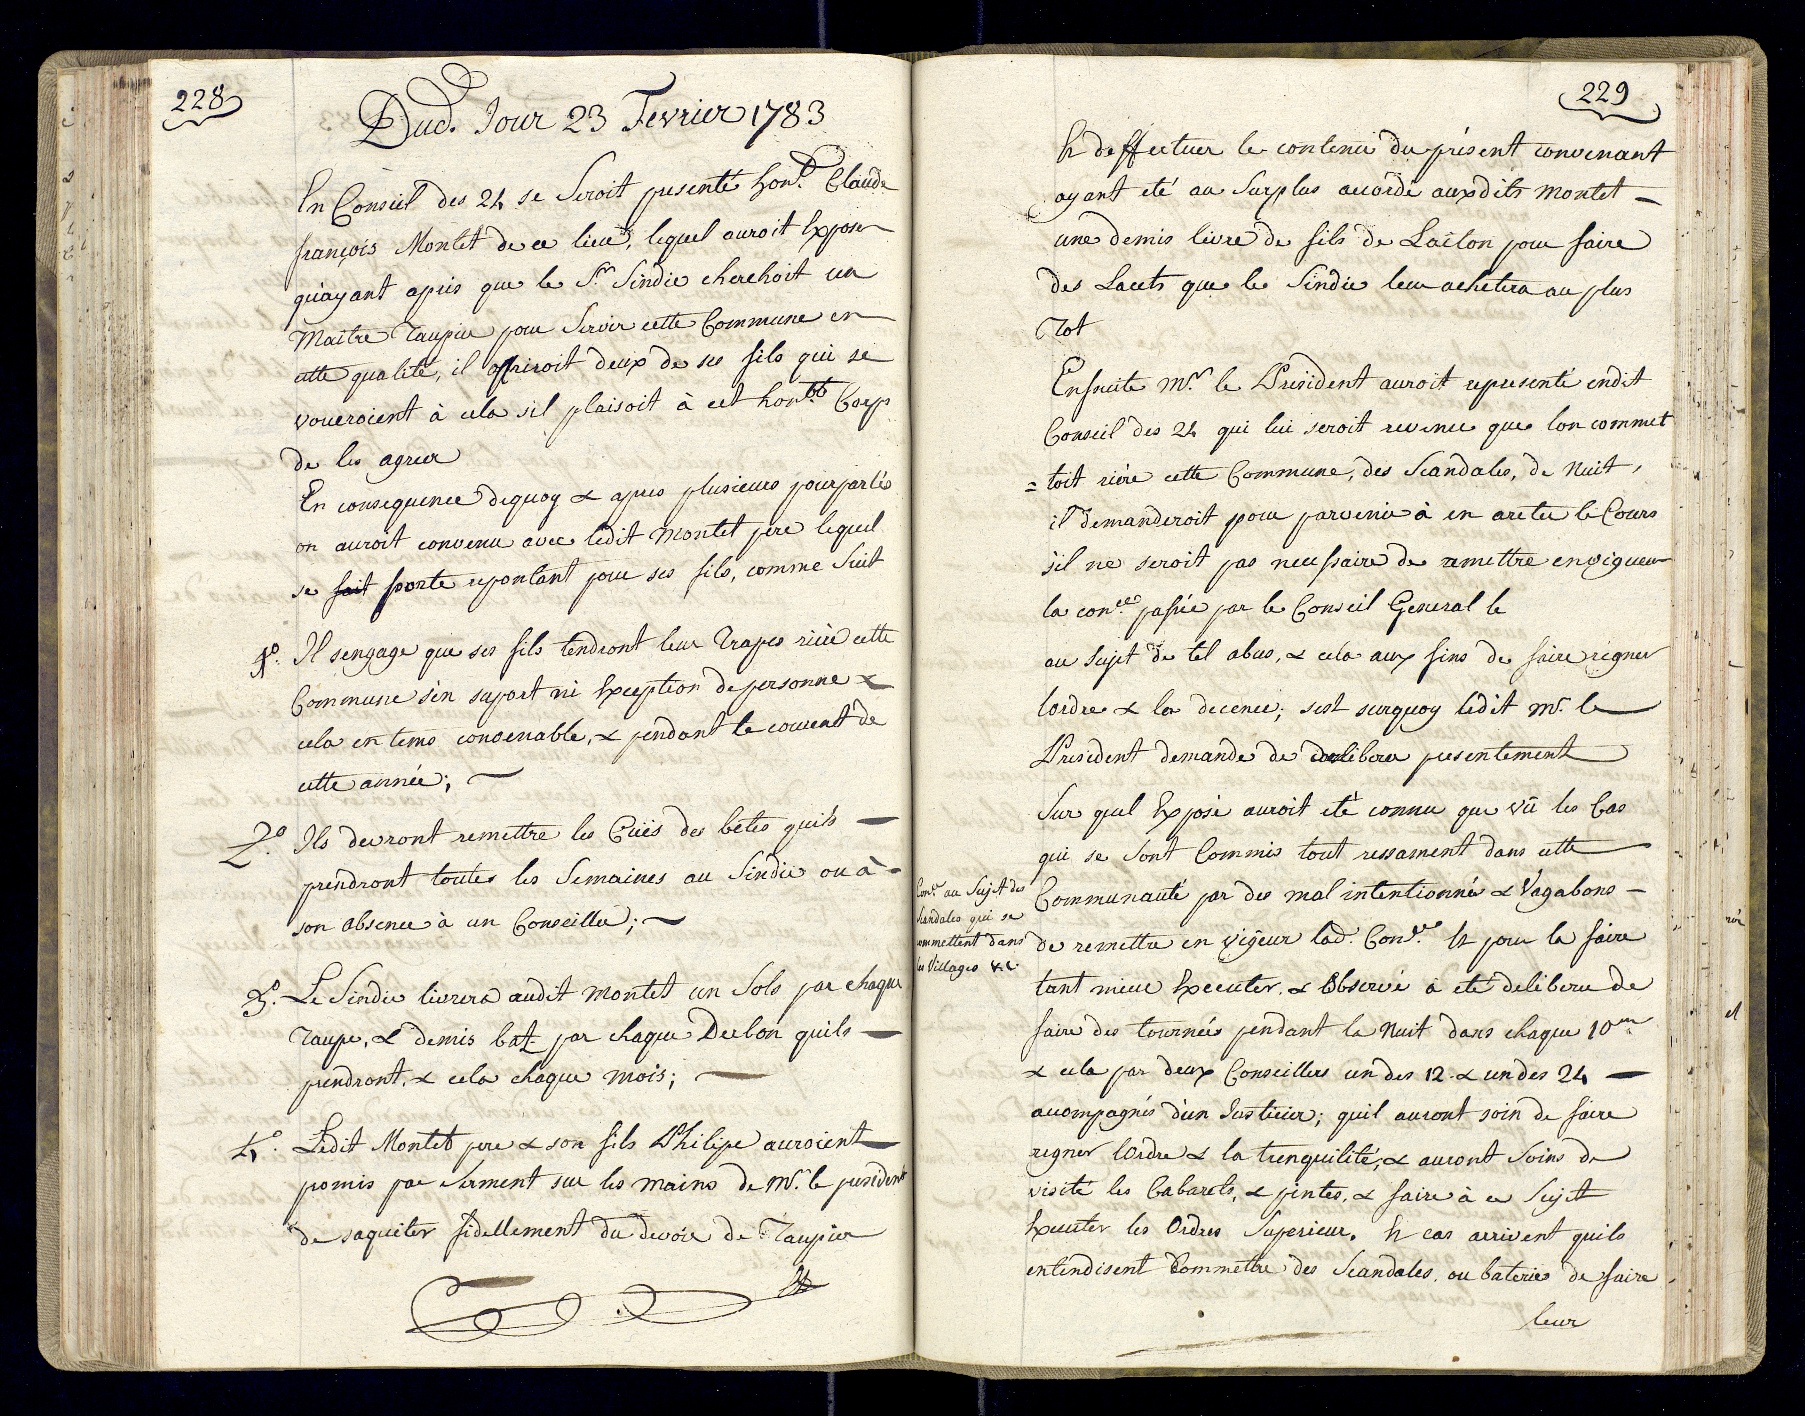 228
Dud. Jour 23 Fevrier 1783
En Conseil des 24 se Seroit presenté hon.^e Claude
françois Montet de ce lieu, lequel auroit Exposer
qu'ayant apris que le S.^r Sindic cherchoit un
Maitre Taupier pour Servir cette Commune en
cette qualité, il offriroit deux de ses fils qui se
voueroient à cela sil plaisoit à cet hon.^ble Corp
de les agreer
En consequence dequoy & apres plusieurs pourparlés
on auroit convenu avec ledit Montet pere lequel
se fait porte repontant pour ses fils, comme Suit
1.^o Il sengage que ses fils tendront leur Trapes riére cette
Commune s'en suport ni Exception de personne &
cela en tems convenable, & pendant le courent de
cette année;
2.^o Ils devront remettre les Cuïs des bêtes quils
prendront toutes les Semaines au Sindic ou à
son absence à un Conseiller;
3.^o Le Sindic livrera audit Montet un Sols par chaque
Taupe, & demis batz par chaque Derbon quils
prendront, & cela chaque mois;
4.^o Ledit Montet pere & son fils Philipe auroient
promis par Serment sur les mains de M.^r le president
de saquiter fidellement du devoir de Taupier
229
Et deffectuer le contenu du présent convenant
ayant eté au Surplus accordé auxdits Montet
une demis livre de fils de Laiton pour faire
des Lacets que le Sindic leur achetera au plus
Tot
Ensuite M.^r le President auroit representé endit
Conseil des 24 qui lui seroit revenu que lon commet
= toit riére cette Commune, des Scandales, de Nuit,
il demanderoit pour parvenir à en areter le Cours
s'il ne seroit pas necessaire de remettre en vigueur
la con.^ce passée par le Conseil General le
au sujet de tel abus, & cela aux fins de faire regner
lordre & la decence; sest surquoy ledit M.^r le
President demande de deliberer presentement
Sur quel Exposé auroit eté connu que vû les Cas
qui se Sont Commis tout ressament dans cette
Con.^ce au Sujet des
Scandales qui se
commettent dans
les Villages &.c.
Communauté par des mal intentionnés & Vagabons
de remettre en vigeur lad. Con.^ce Et pour la faire
tant mieu Executer & Observé a eté deliberer de
faire des tournées pendant la Nuit dans chaque 10^ne
& cela par deux Conseillers un des 12 & un des 24
acompagnés d'un Justicier; quil auront soin de faire
regner lOrdre & la trenquilité, & auront Soins de
visité les Cabarets, & pintes, & faire à ce Sujet
Executer les Ordres Superieur. Et cas arrivent quils
entendisent Commettre des Scandales, ou bateries de faire
leur